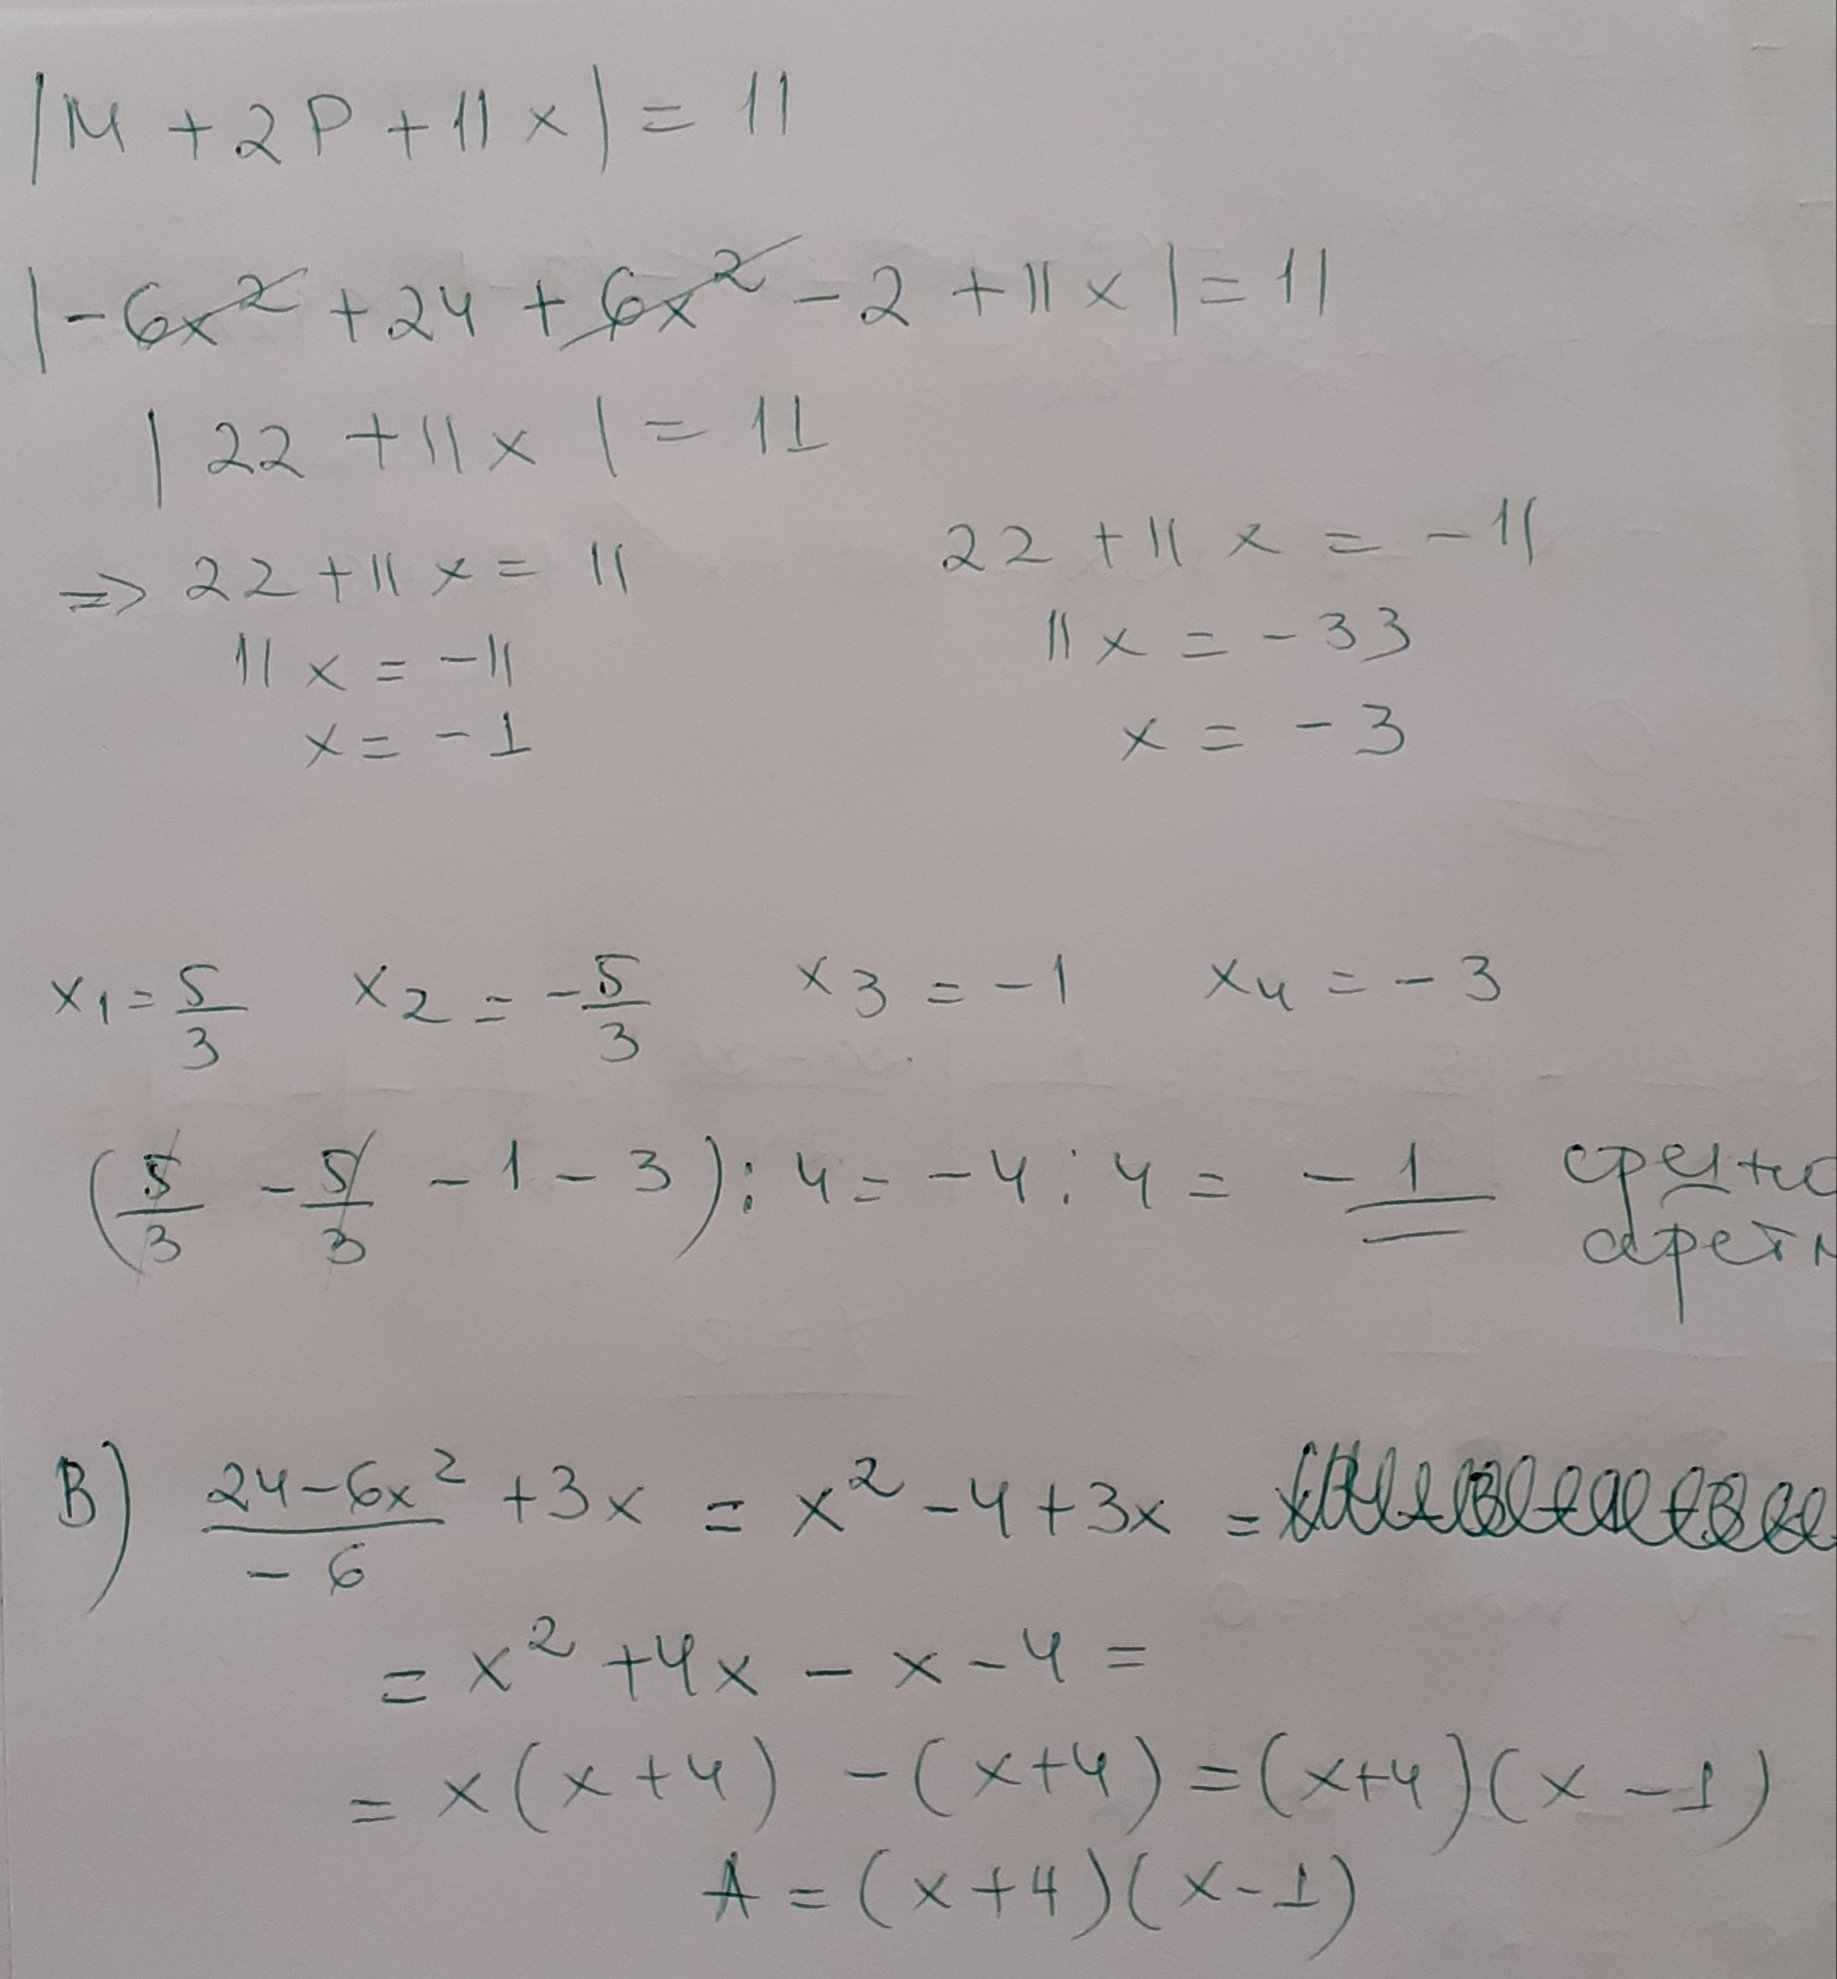 |M + 2P + 11x| = 11
|-6x² + 24 + 6x² - 2 + 11x| = 11
|22 + 11x| = 11
=> 22 + 11x = 11
11x = -11
x = -1
22 + 11x = -11
11x = -33
x = -3
x₁ = 5/3 x₂ = -5/3 x₃ = -1 x₄ = -3
(5/3 - 5/3 - 1 - 3) : 4 = -4 : 4 = -1 средно
В) (24 - 6x²)/(-6) + 3x = x² - 4 + 3x =
= x² + 4x - x - 4 =
= x(x + 4) - (x + 4) = (x + 4)(x - 1)
A = (x + 4)(x - 1)